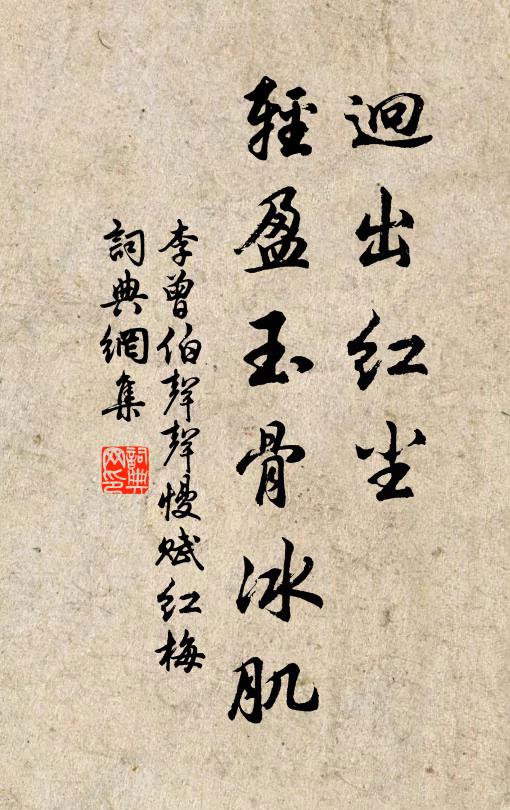 迥出红尘
輕盈玉骨冰肌
李曾伯聲聲慢赋红梅
詞典網集
詞典网印